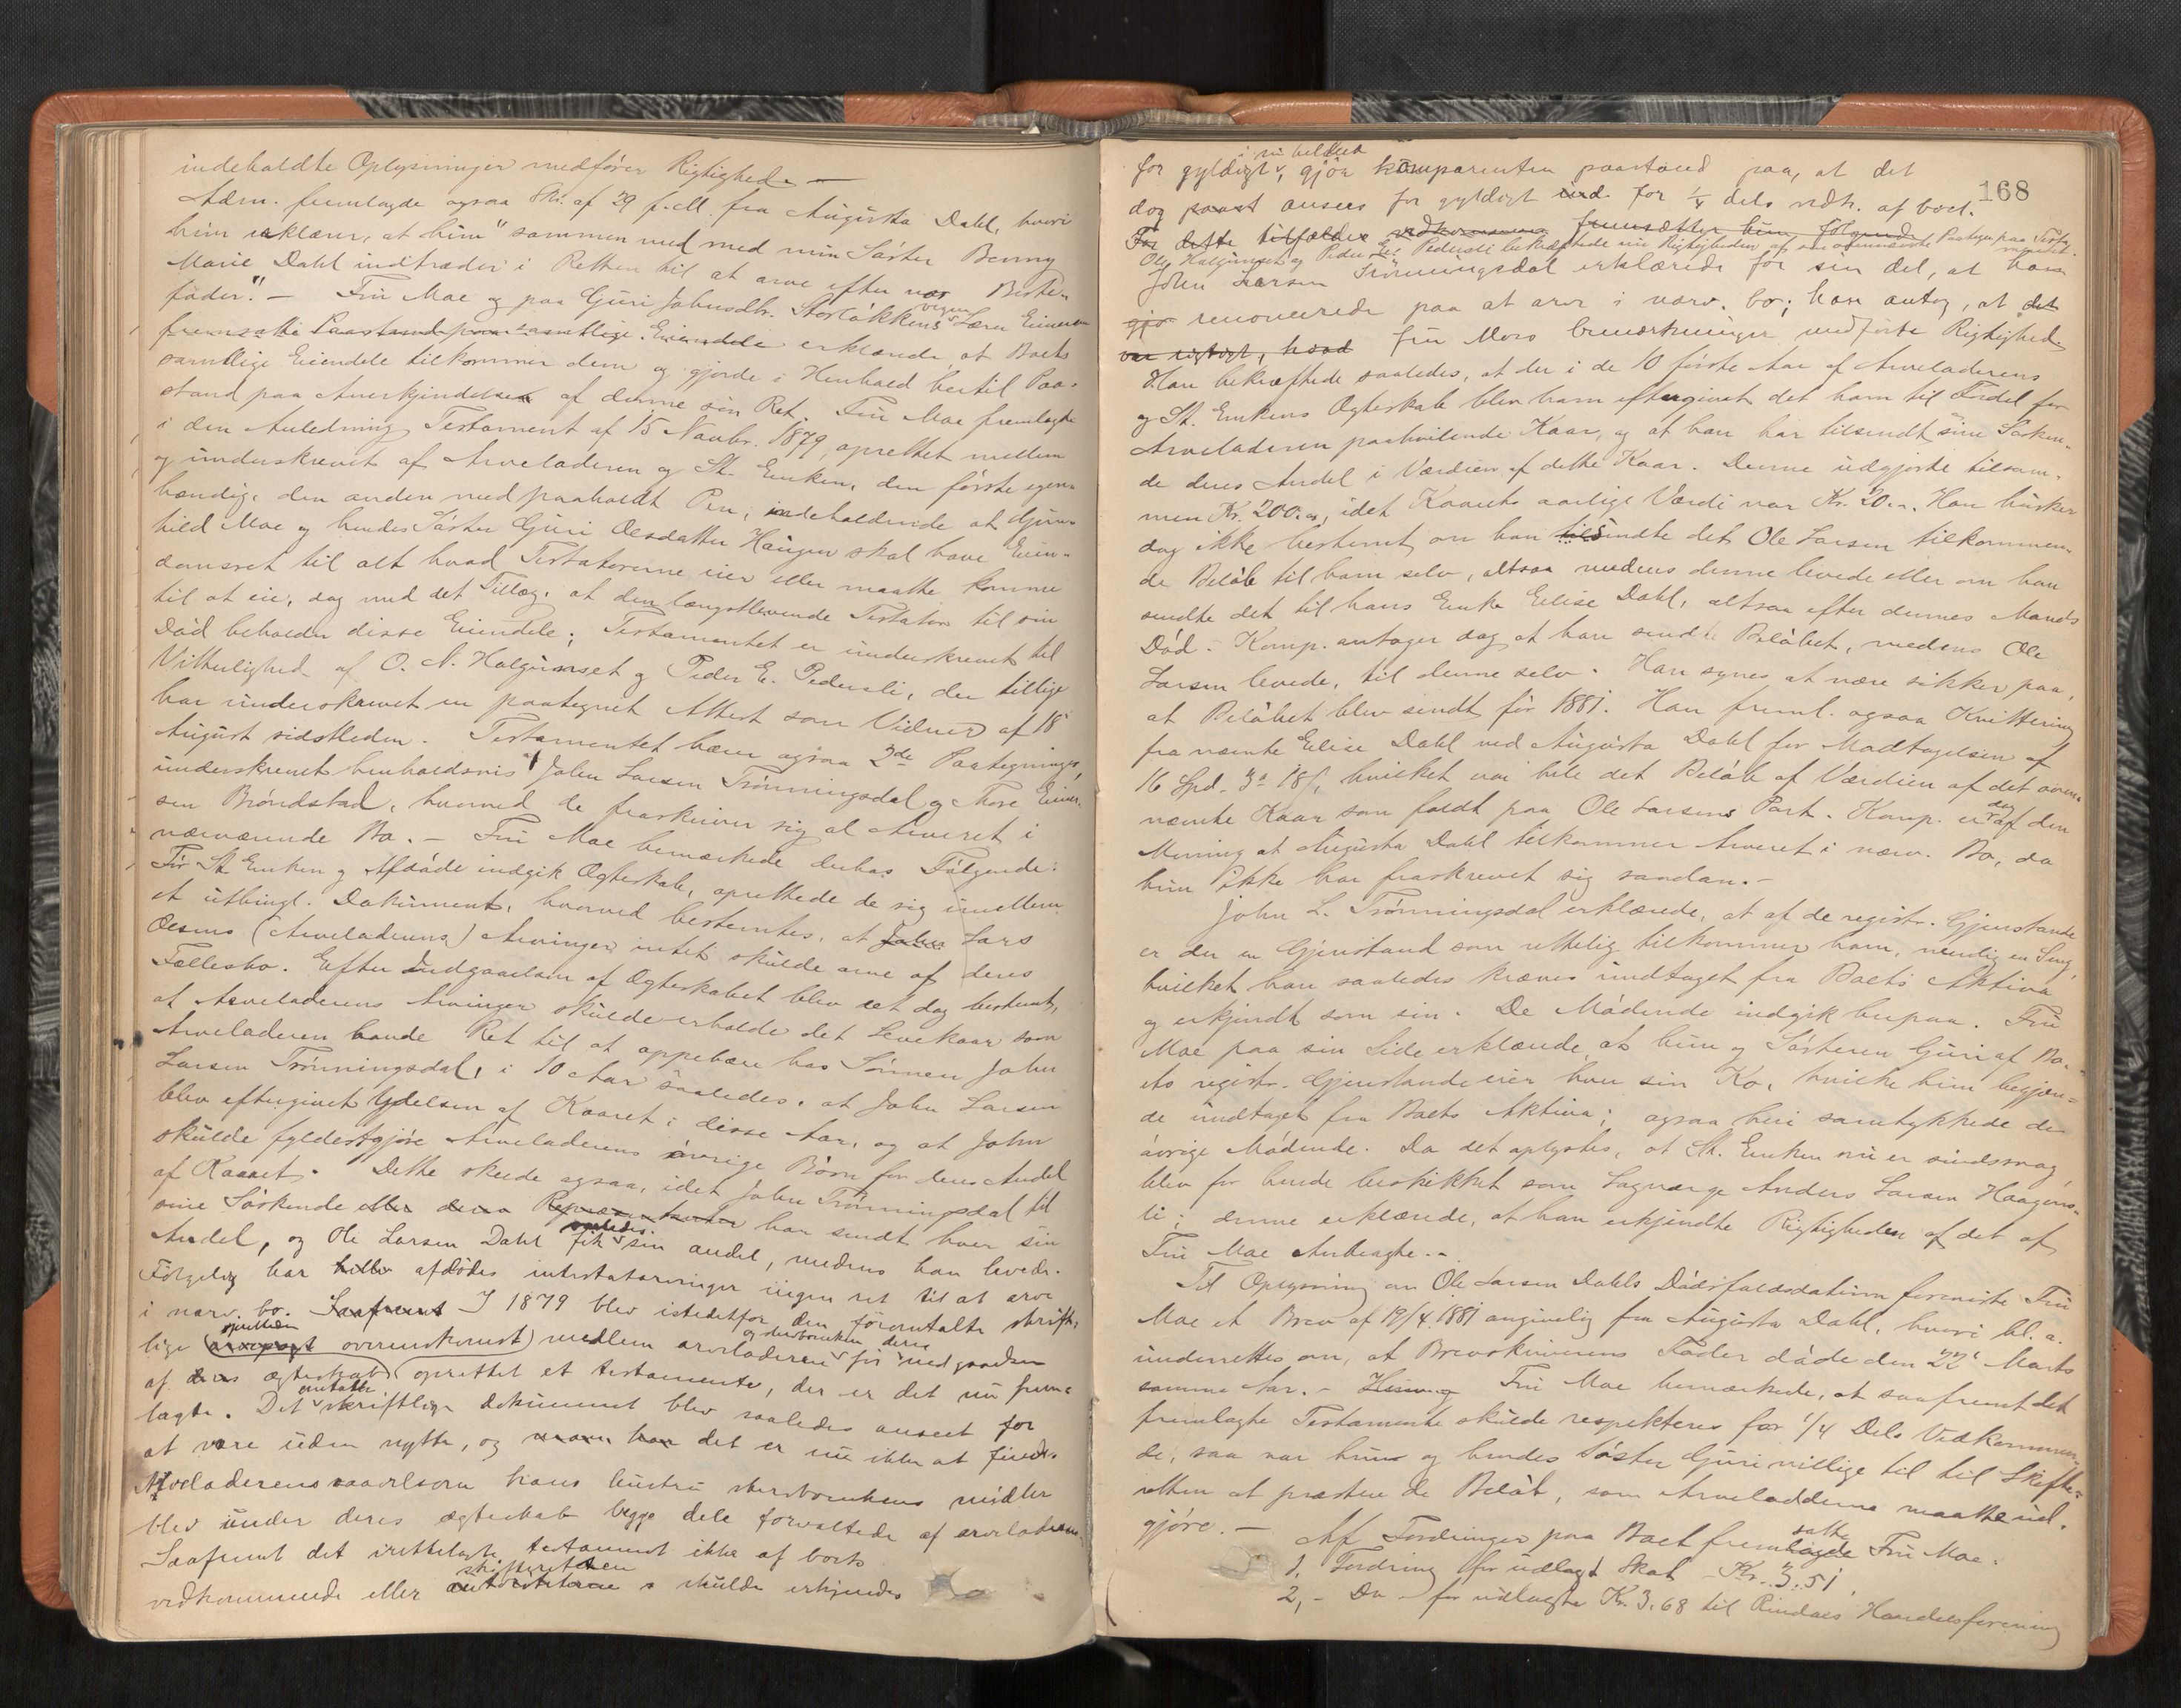 indeholdte Oplysninger medfører Rigtighed. —
Adm. fremlagde ogsaa Skr. af 29 f. M. fra Augusta Dahl, hvori
hun erklærer, at hun "sammen med med min Søster Benny
Marie Dahl indtræder i Retten til at arve efter vor Beste-
fader". — Fru Moe og paa Guri Johnsdtr. Storløkkens vegne Lærer Einersen
fremsatte Paastand paa samtlige Eiendele erklærede, at Boets
samtlige Eiendele tilkommer dem og gjorde i Henhold hertil Paa-
stand paa Anerkjendelsen af denne sin Ret. Fru Moe fremlagde
i den Anledning Testament af 15 Novbr. 1879, oprettet mellem
og underskrevet af Arveladeren og St. Enken, den første egen-
hændig, den anden med paaholdt Pen, indeholdende at Gun-
hild Moe og hendes Søster Guri Olesdatter Haugen skal have Eien-
domsret til alt hvad Testatorerne eier eller maatte komme
til at eie, dog med det Tillæg, at den længstlevende Testator til sin
Død beholder disse Eiendele; Testamentet er underskrevet til
Vitterlighed af O. N. Halgunset og Peder E. Pedersli, der tillige
har underskrevet en paategnet Attest som Vidner af 18
August sidstleden. Testamentet bærer ogsaa 2de Paategninger,
underskrevet henholdsvis af John Larsen Trønningsdal og Thore Einer-
sen Brøndstad, hvorved de fraskriver sig al Arveret i
nærværende Bo. — Fru Moe bemærkede derhos Følgende:
Før St. Enken og Afdøde indgik Ægteskab, oprettede de sig imellem
et uthingl. Dokument, hvorved bestemtes, at John Lars
Olsens (Arveladerens) Arvinger intet skulde arve af deres
Fællesbo. Efter Indgaaelsen af Ægteskabet blev det dog bestemt,
at Arveladerens Arvinger skulde erholde det Levekaar som
Arveladeren havde Ret til at oppebære hos Sønnen John
Larsen Trønningsdal, i 10 Aar saaledes, at John Larsen
blev eftergivet Ydelsen af Kaaret i disse Aar, og at John
skulde fyldestgjøre Arveladerens øvrige Børn for deres Andel
af Kaaret. Dette skede ogsaa, idet John Trønningsdal til
sine Søskende eller deres Repræsentanter har sendt hver sin
Andel, og Ole Larsen Dahl fik saaledes sin andel, medens han levede.
Følgelig har hello afdødes intestatarvinger ingen ret til at arve
i nærv. bo. Saafremt I 1879 blev istedetfor den føromtalte skrift-
lige (arvepagt overenskomst) mellem arveladeren og sterboenken før deres indgaaelsen
af deres ægteskab oprettet et testamente, der er det nu frem-
lagte. Det omtalte skriftlige dokument blev saaledes anseet for
at være uden nytte, og man har det er nu ikke at finde.
Arveladerens saavelsom hans hustru sterboenkens midler
blev under deres ægteskab begge dele forvaltede af arveladeren.
Saafremt det irettelagte testament ikke af boets
vedkommende eller autoriteterne skifteretten skulde erkjendes
168
for gyldigt i sin helhed, gjør komparenten paastand paa, at det
dog paast ansees for gyldigt ind for 1/4 dels vedk. af boet.
For dette tilfælde vedkommende fremsætter hun følgende
Ole Halgunset og Peder Eil. Pedersli bekræftede nu Rigtigheden af sin ovennævnte Paategn. paa Testamentet.
John Larsen Trønningsdal erklærede for sin del, at han
gjø renoncerede paa at arve i nærv. bo; han antog, at det
var rigtigt, hvad Fru Moes bemærkninger medførte Rigtighed.
Han bekræftede saaledes, at der i de 10 første Aar af Arveladerens
og St. Enkens Ægteskab blev ham eftergivet det ham til Fordel for
Arveladeren paahvilende Kaar, og at han har tilsendt sine Søsken-
de deres Andel i Værdien af dette Kaar. Denne udgjorde tilsam-
men Kr. 200.00, idet Kaarets aarlige Værdi var Kr. 20.–. Han husker
dog ikke bestemt, om han tilsendte det Ole Larsen tilkommen-
de Beløb til ham selv, altsaa medens denne levede eller om han
sendte det til hans Enke Elise Dahl, altsaa efter dennes Mands
Død. – Komp. antager dog at han sendte Beløbet, medens Ole
Larsen levede, til denne selv. Han synes at være sikker paa,
at Beløbet blev sendt før 1881. Han freml. ogsaa Kvittering
fra nævnte Elise Dahl ved Augusta Dahl for Modtagelsen af
16 Spd. 3 18 s, hvilket var hele det Beløb af Værdien af det oven-
nævnte Kaar som faldt paa Ole Larsens Part. Komp. er dog af den
Mening at Augusta Dahl tilkommer Arveret i nærv. Bo, da
hun ikke har fraskrevet sig saadan. –
John L. Trønningsdal erklærede, at af de registr. Gjenstande
er der en Gjenstand som rettelig tilkommer ham, nemlig en Seng,
hvilket han saaledes kræves undtaget fra Boets Aktiva
og erkjendt som sin. De Mødende indgik herpaa. Fru
Moe paa sin Side erklærede, at hun og Søsteren Guri af Bo-
ets registr. Gjenstande eier hver sin Ko, hvilke hun begjær-
de undtaget fra Boets Aktiva; ogsaa heri samtykkede de
øvrige Mødende. Da det oplystes, at St. Enken nu er sindssvag,
blev for hende beskikket som Lagværge Anders Larsen Haagens-
li; denne erklærede, at han erkjendte Rigtigheden af det af
Fru Moe Anbragte. –
Til Oplysning om Ole Larsen Dahls Dødsfaldsdatum foreviste Fru
Moe et Brev af 19/4 1881 angivelig fra Augusta Dahl, hvori bl. a.
underrettes om, at Brevskriverens Fader døde den 22 Marts
samme Aar. – Fru Moe bemærkede, at saafremt det
fremlagte Testamente skulde respekteres for 1/4 Dels Vedkommen-
de, saa var hun og hendes Søster Guri villige til til Skifte-
retten at præstere de Beløb, som Arveladderne maatte ud-
gjøre. — Af Fordringer paa Boet fremlagde satte Fru Moe:
1. Fordring for udlagt Skat – Kr. 3.51.
2, – Do – for udlagte Kr. 3.68 til Rindals Handelsforening